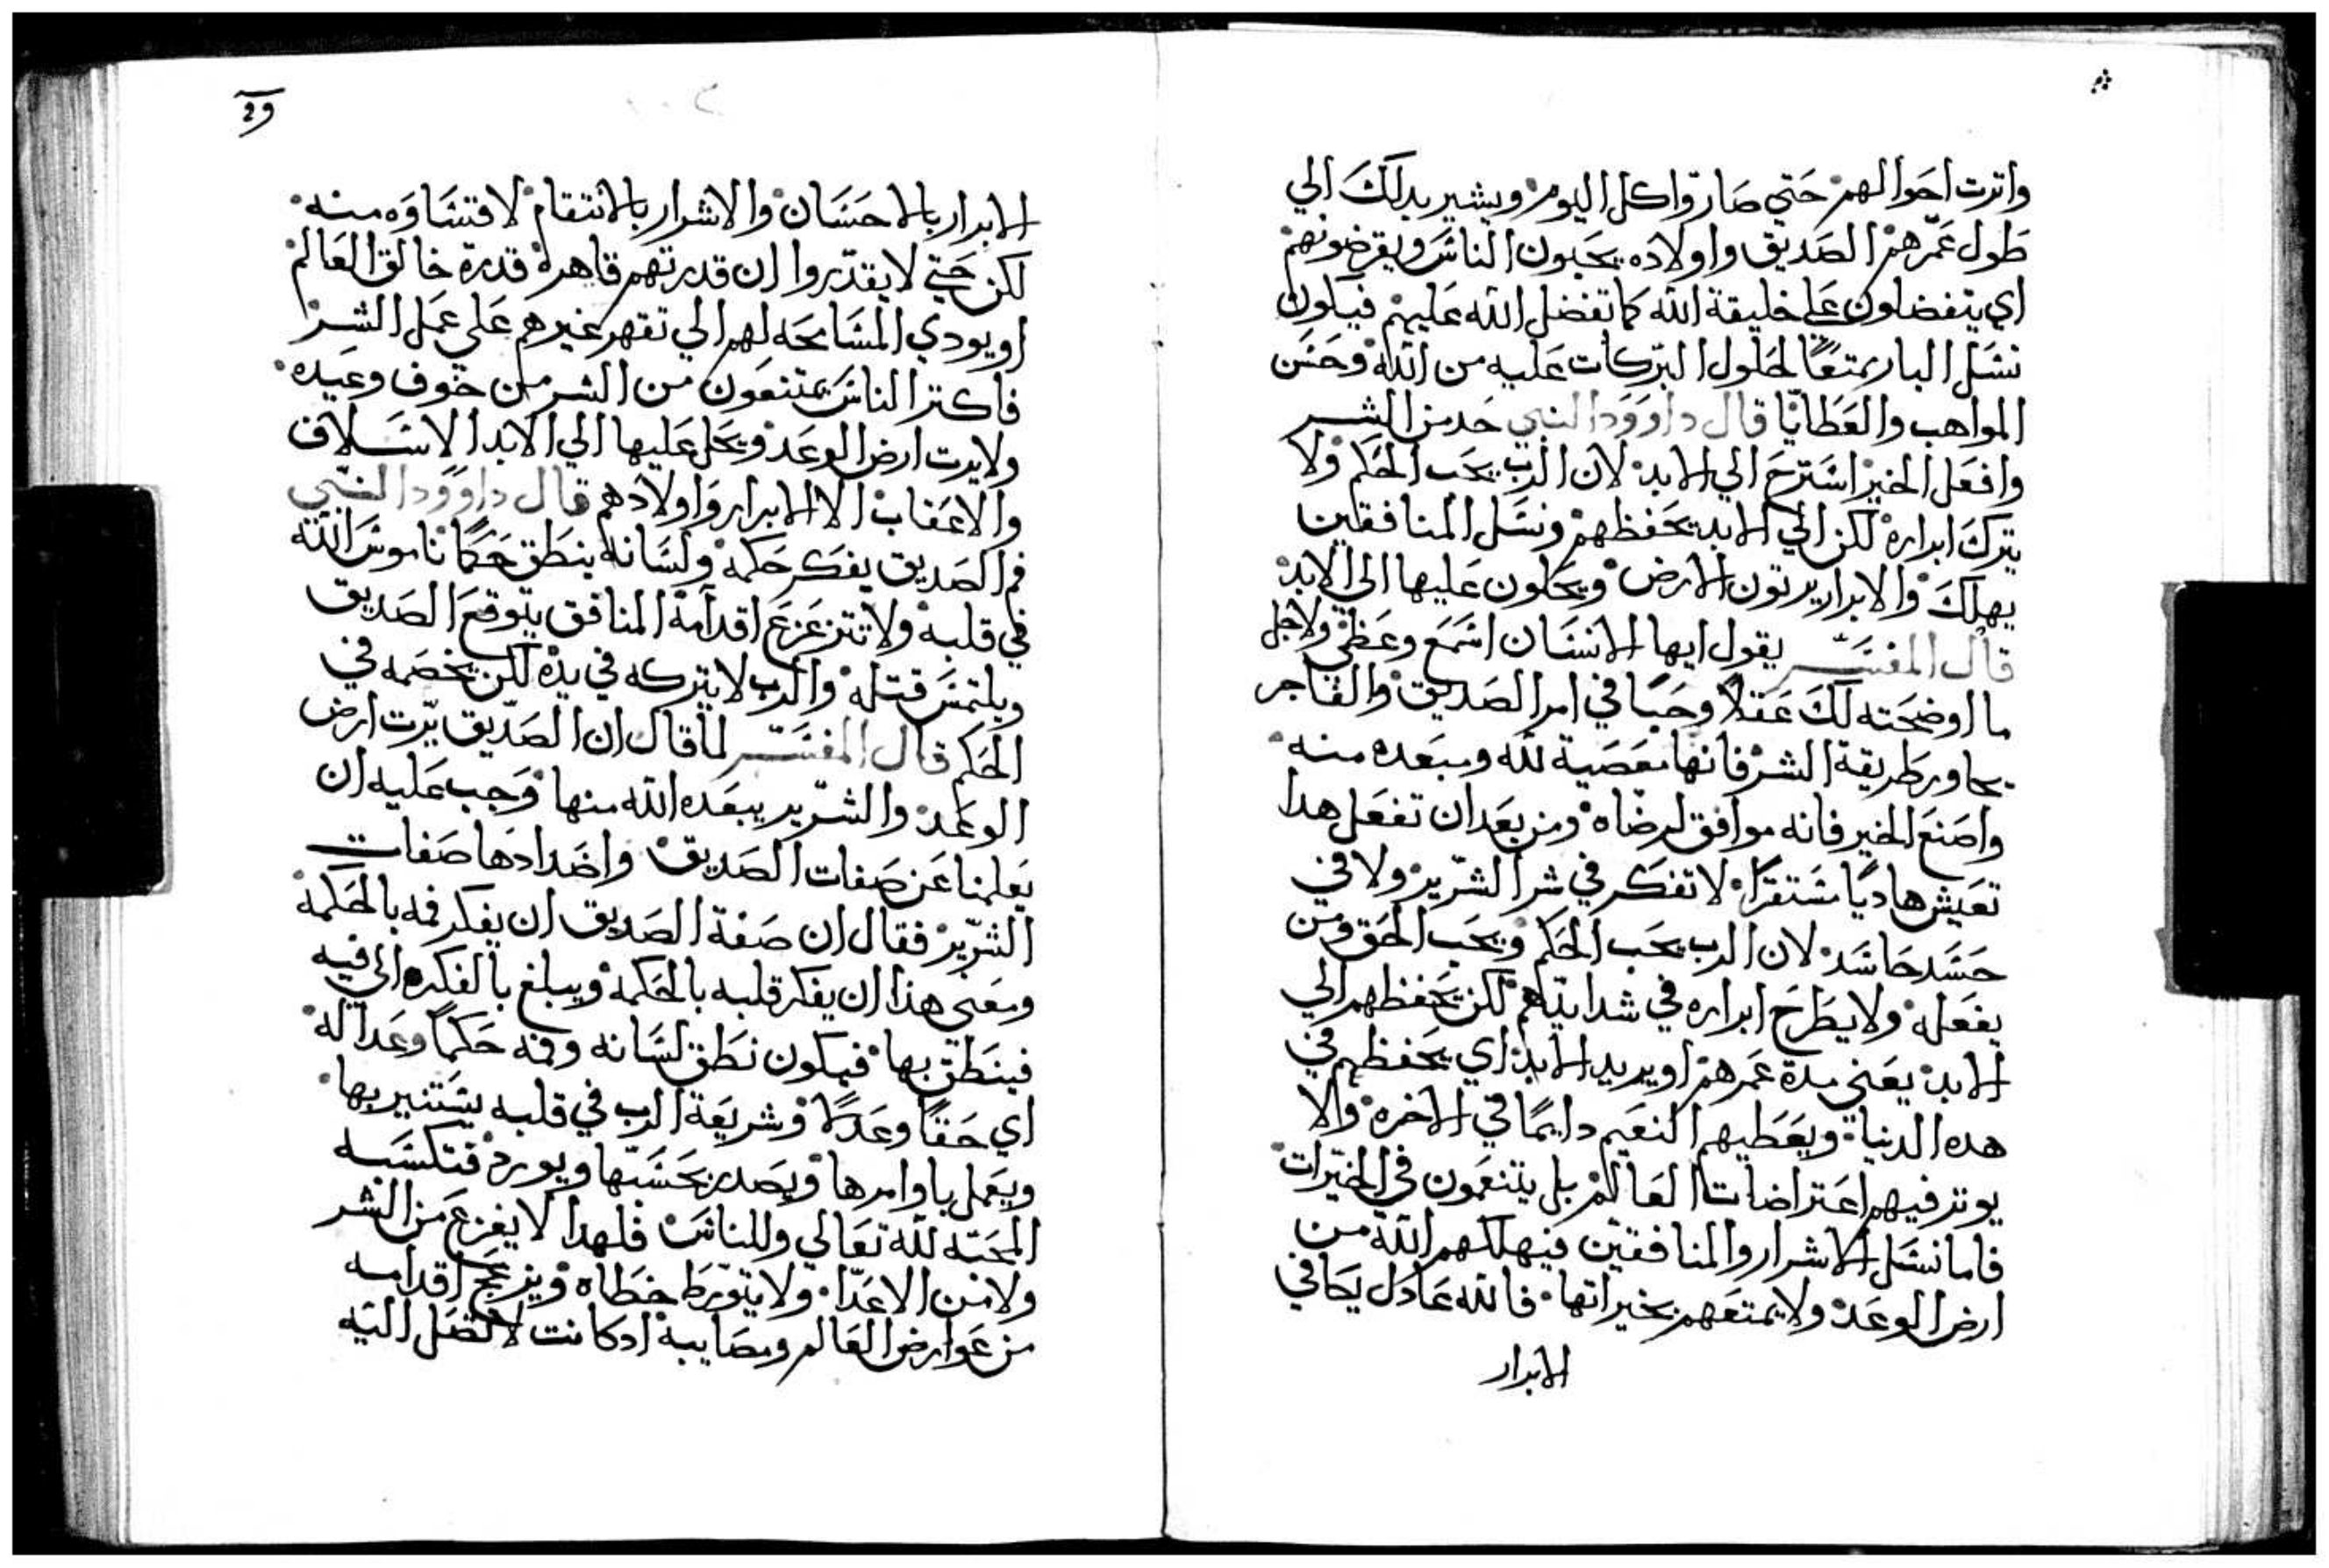 واترت احوالهم حتي صاروا كل اليوم ويشير بدلك الي
طول عمرهم الصديق واولاده يحبون الناس ويقرضونهم
اي يتفضلون علي خليقة الله كما تفضل الله عليهم فيكون
نسل البار ممتعًا لحلول البركات عليه من الله وحسن
المواهب والعطايا قال داوود النبي حد من الشر
وافعل الخير استرح الي الابد لان الرب يحب الحكم ولا
يترك ابراره لكن الي الابد يحفظهم ونسل المنافقين
يهلك والابرار يرتون الارض ويحلون عليها الي الابد
قال المفسر يقول ايها الانسان اسمع وعظي ولاجل
ما اوضحته لك عقلاً وحبًا في امر الصديق والفاجر
جاور طريقة الشر فانها معصية لله ومبعده منه
واصنع الخير فانه موافق لرضاه ومن بعد ان تفعل هدا
تعيش هاديًا مستقرًا لا تفكر في شر الشرير ولا في
حسد حاسد لان الرب يحب الحكم ويحب الحق ومن
يفعله ولا يطرح ابراره في شدايدهم لكن يحفظهم الي
الابد يعني مدة عمرهم او يريد الابد اي يحفظهم في
هده الدنيا ويعطيهم النعيم دايمًا في الاخره والا
يوتر فيهم اعتراضات العالم بل يتنعمون في الخيرات
فاما نسل الاشرار والمنافقين فيهلكهم الله من
ارض الوعد ولا يمتعهم بخيراتها فالله عادل يكافي
الابرار
29
الابرار بالاحسان والاشرار بالانتقام لا قتساوه منه
لكن حتي لا يقدروا ان قدرتهم قاهرة قدرة خالق العالم
او يودي المسامحه لهم الي تقهر غيرهم علي عمل الشر
فاكتر الناس يمتنعون من الشر من خوف وعيده
ولا يرت ارض الوعد ويحل عليها الي الابد الاسلاف
والاعقاب الا الابرار واولادهم قال داوود النبي
فم الصديق يفكر حكمه ولسانه ينطق حكمًا ناموس الله
في قلبه ولا تتزعزع اقدامه المنافق يتوقع الصديق
ويلتمس قتله والرب لا يتركه في يده لكن يخصمه في
الحكم قال المفسر لما قال ان الصديق يرت ارض
الوعد والشرير يبعده الله منها وجب عليه ان
يعلمنا عن صفات الصديق واضدادها صفات
الشرير فقال ان صفة الصديق ان يفكر فمه بالحكمه
ومعني هذا ان يفكر قلبه بالحكمه ويبلغ بالفكره الي فيه
فينطق بها فيكون نطق لسانه وفمه حكمًا وعداله
اي حقًا وعدلاً وشريعة الرب في قلبه يستنير بها
ويعمل باوامرها ويصدر بحسبها ويورد فتكسبه
المحبه لله تعالي وللناس فلهدا لا يفزع من الشر
ولا من الاعدا ولا يتورط خطاه ويزعج اقدامه
من عوارض العالم ومصايبه ادكانت لا تصل اليه